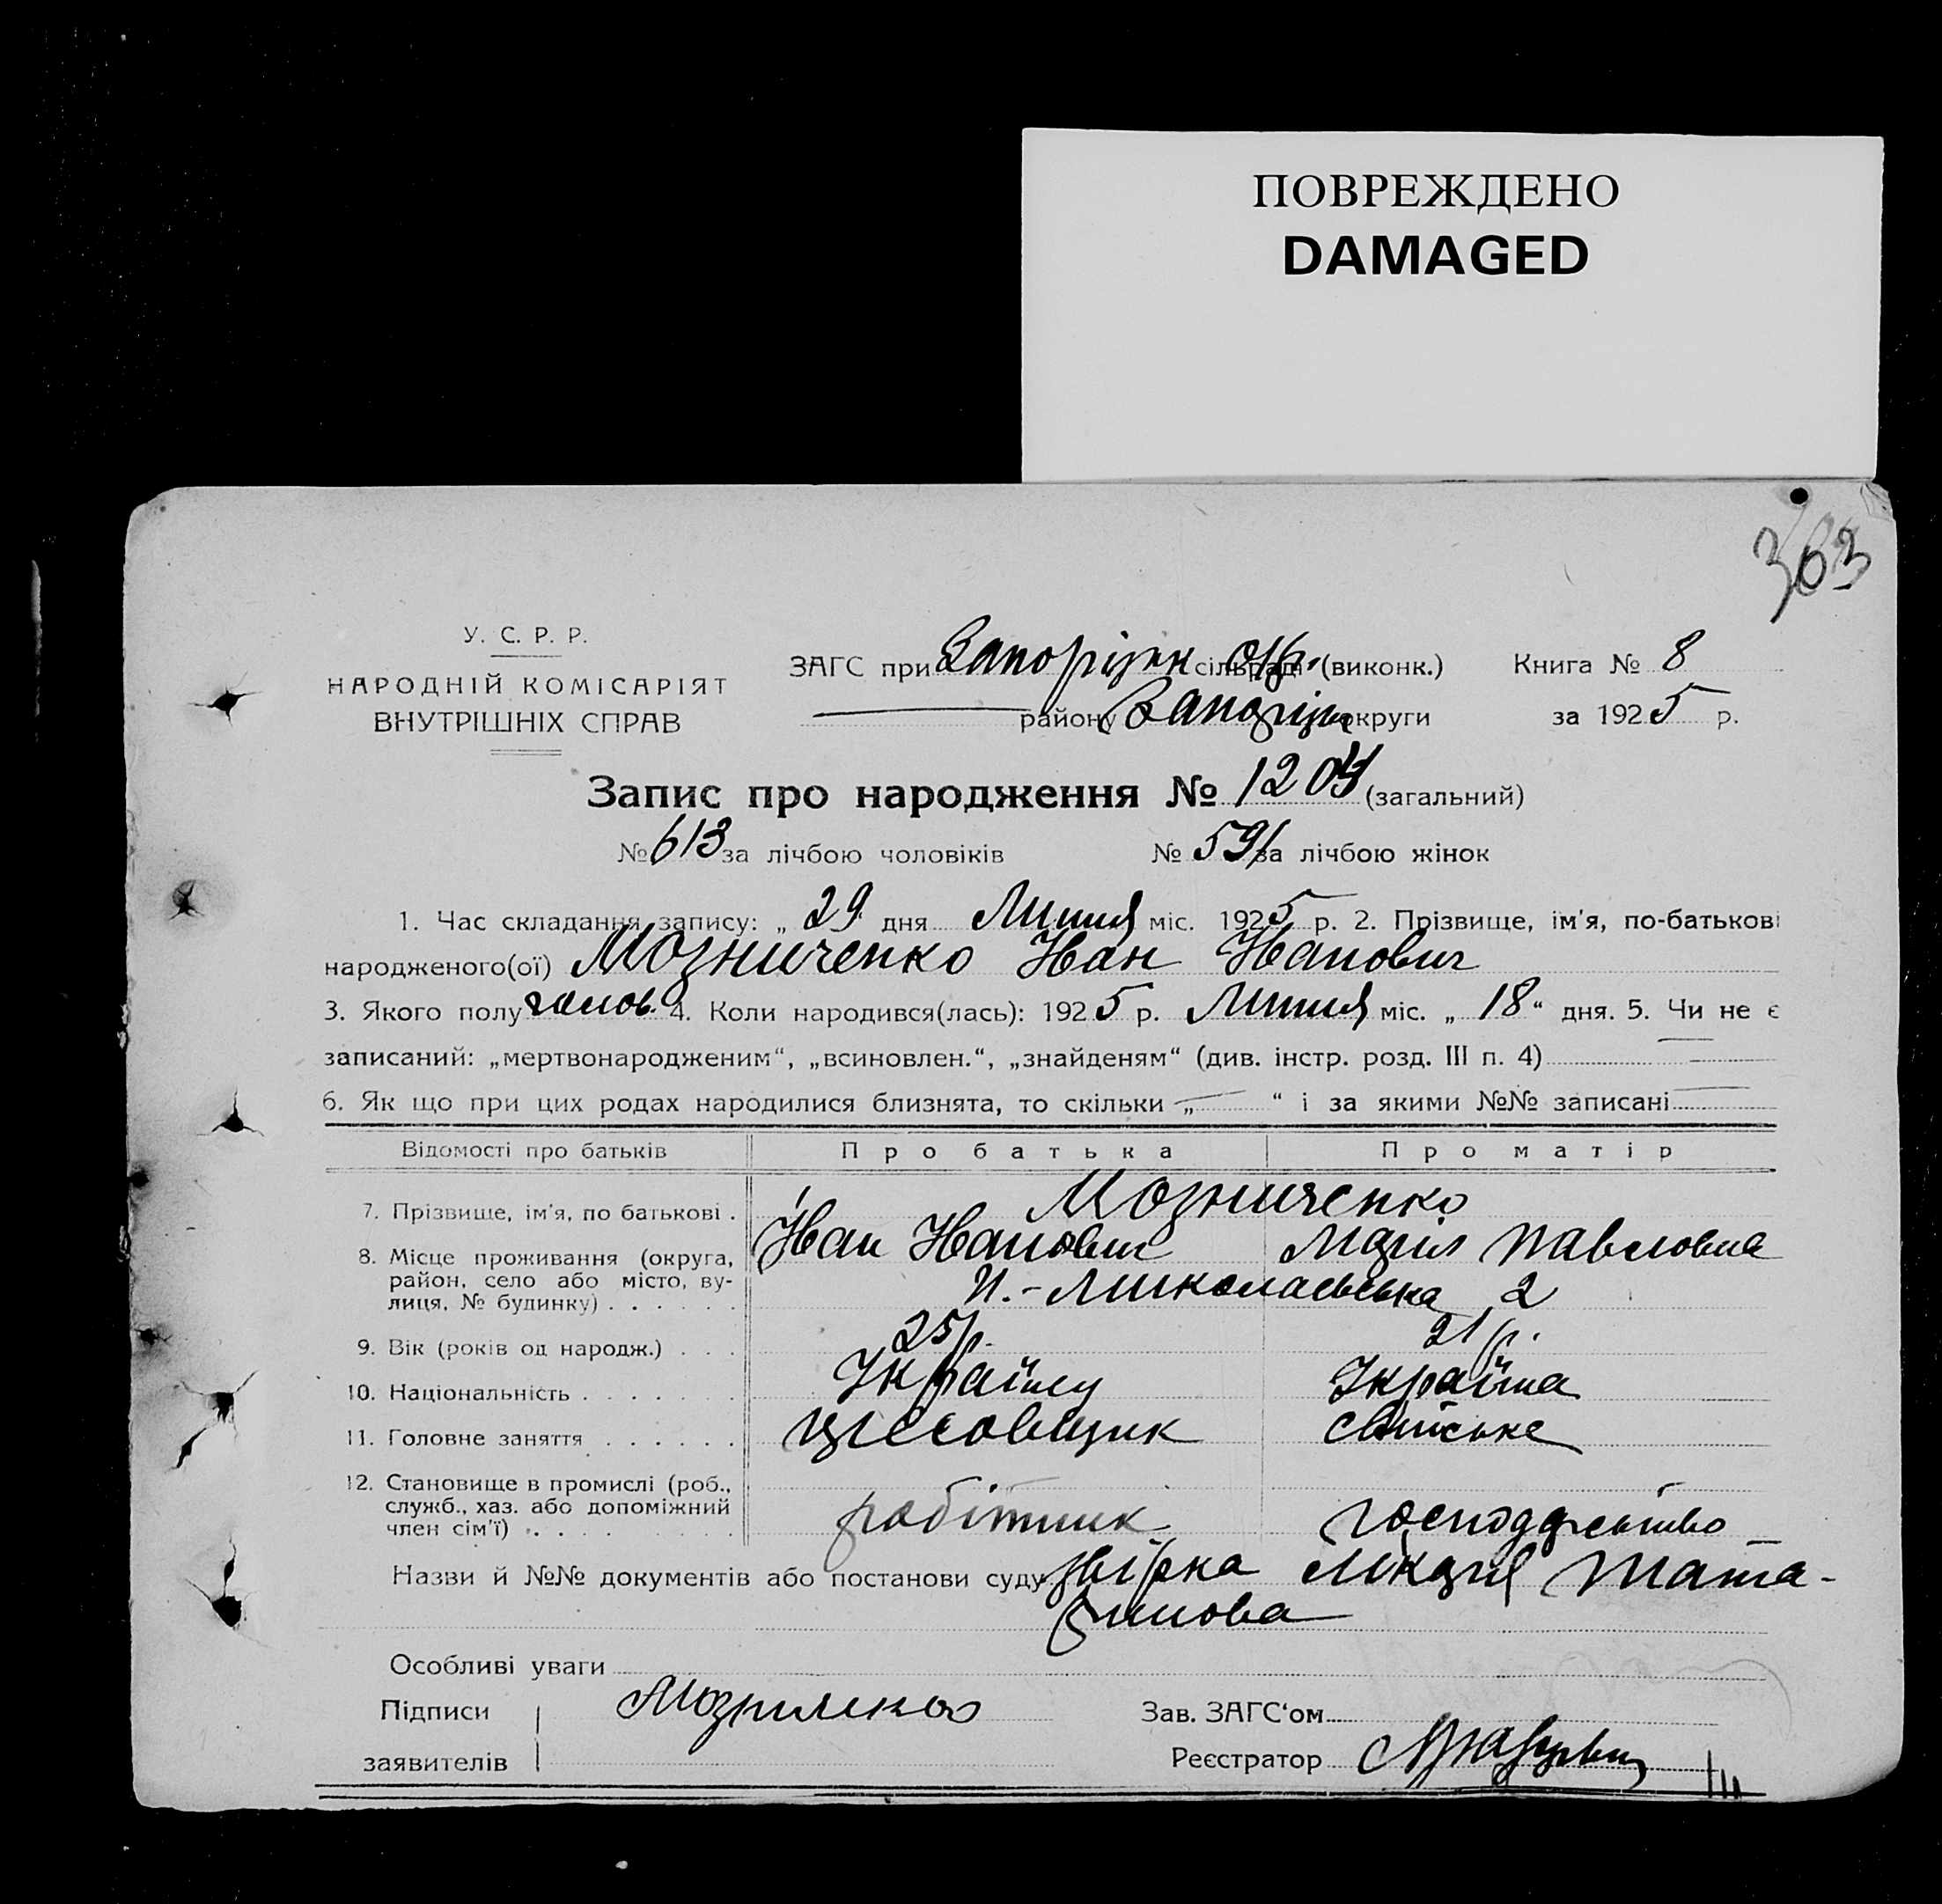 ПОВРЕЖДЕНО
DAMAGED
363
У. С. Р. Р.
НАРОДНІЙ КОМІСАРІЯТ
ВНУТРІШНІХ СПРАВ
ЗАГС при Запоріжк сільраді (виконк.) Книга № 8
району Запоріжк округи за 1925 р.
Запис про народження № 1204 (загальний)
№ 613 за лічбою чоловіків № 591 за лічбою жінок
1. Час складання запису: „ 29 дня Липня міс. 1925 р. 2. Прізвище, ім'я, по-батькові
народженого(ої) Мозниченко Іван Іванович
3. Якого полу чолов. 4. Коли народився(лась): 1925 р. Липня міс. „ 18 “ дня. 5. Чи не є
записаний: „мертвонародженим“, „всиновлен.“, „знайденям“ (див. інстр. розд. III п. 4)
6. Як що при цих родах народилися близнята, то скільки „ “ і за якими №№ записані
Відомості про батьків Про батька Про матір
7. Прізвище, ім'я, по батькові . Мозниченко
Іван Іванович Марія Павловна
8. Місце проживання (округа,
район, село або місто, ву-
лиця, № будинку) . . . . . . Н.-Миколаєвська 2
9. Вік (років од народж.) . . . 25 р. 21 р.
10. Національність . . . . . . . Україн Українка
11. Головне заняття . . . . . . хатське
12. Становище в промислі (роб.,
служб., хаз. або допоміжний
член сім'ї) . . . . робітник господарство
Назви й №№ документів або постанови суду
Особливі уваги
Підписи
заявителів
Зав. ЗАГС'ом
Реєстратор